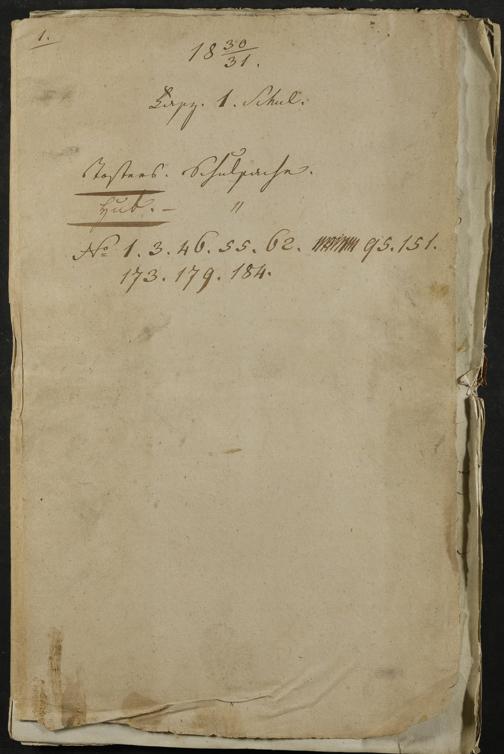 1.
18 30/31.
Kapp. 1. Schul.
Tosters. Schulsache.
Hub. – "
No 1. 3. 46. 55. 62. 95. 151.
173. 179. 184.